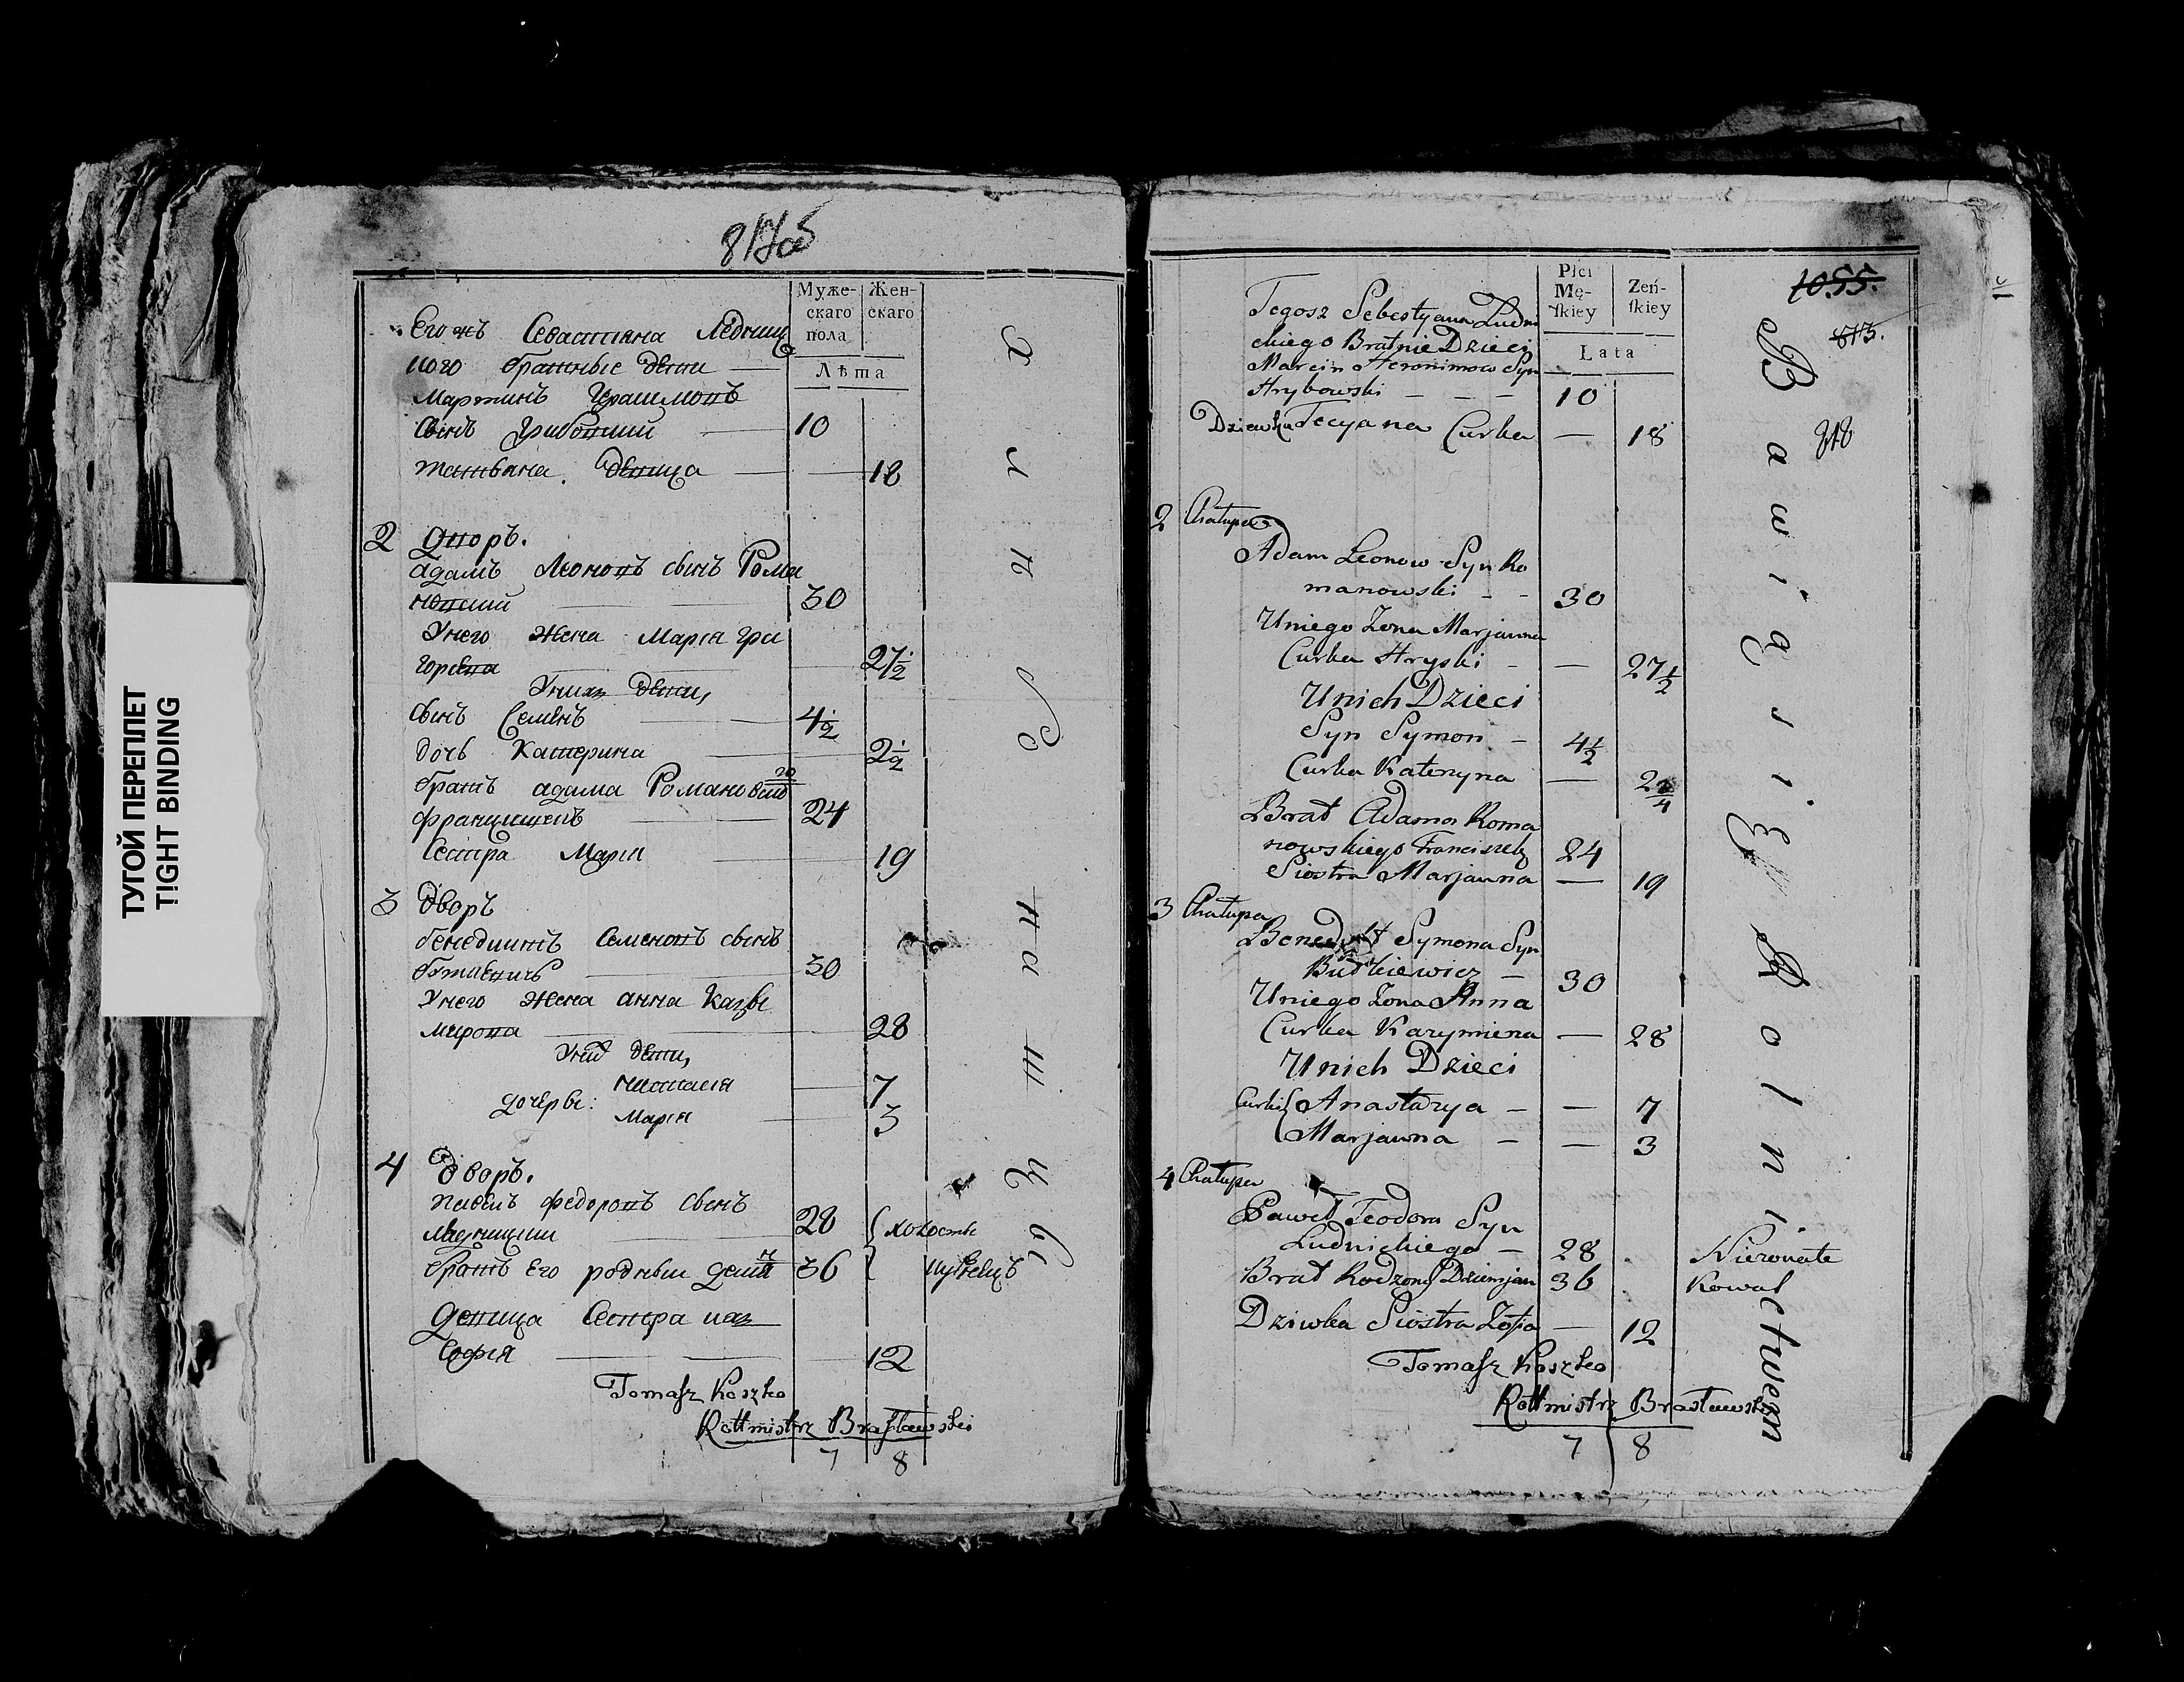 ТУГОЙ ПЕРЕПЛЕТ
TIGHT BINDING
817об
Муже-
скаго
пола
Жен-
скаго
Лѣта
Его жъ Севастіяна Ледниц
кого братные дети
Мартинъ Ерашмовъ
сынъ Грибовкий 10
татьяна девица 18
2 Дворъ.
адамъ Леоновъ сынъ Рома
новский 30
Унего жена Марія гри
горева 27 1/2
Униха дети,
сынъ Семенъ 4 1/2
дочь Катерина 2 1/2
братъ адама Романовскаго
францишекъ 24
Сестра Марія 19
3 Дворъ
бенедиктъ Семеновъ сынъ
буткевичъ 30
Унего жена анна Казы
мирова 28
Унихъ дети,
дочеры:
7
Марія 3
4 Дворъ.
павелъ федоровъ сынъ
28 холосты
братъ Его родныи 36
Девица Сестра
Софія 12
Tomasz Koszko
Rottmistrz Brasławski
7 8
Płci
Mę-
skiey
Żeń-
skiey
Lata
1055.
813.
818
Tegosz Sebestyana Ludni
ckiego Bratnie Dzieci
Marcin Heronimow Syn
Hrybowski - - - 10
Dziewka Tecyana Curka — 18
2 Chałupa
Adam Leonow Syn Ro
manowski - - 30
Uniego Zona Marjanna
Curka Hryski - — 27 1/2
Unich Dzieci
Syn Symon - 4 1/2
Curka Kateryna — 2 2/4
Brat Adama Roma
nowskiego Franciszek 24
Siostra Marjanna — 19
3 Chałupa
Benedykt Symona Syn
Budkiewicz - 30
Uniego Zona Anna
Curka Kazymiera — 28
Unich Dzieci
Curki Anastazya - — 7
Marjanna - — 3
4 Chałupa
Paweł Teodora Syn
Ludnickiego - 28 Niezonate
Brat Rodzony Dziemjan 36 Kowal
Dziwka Siostra Zofia — 12
Tomasz Koszko
Rottmistrz Brasławski
7 8
Bawią się Rolnictwem